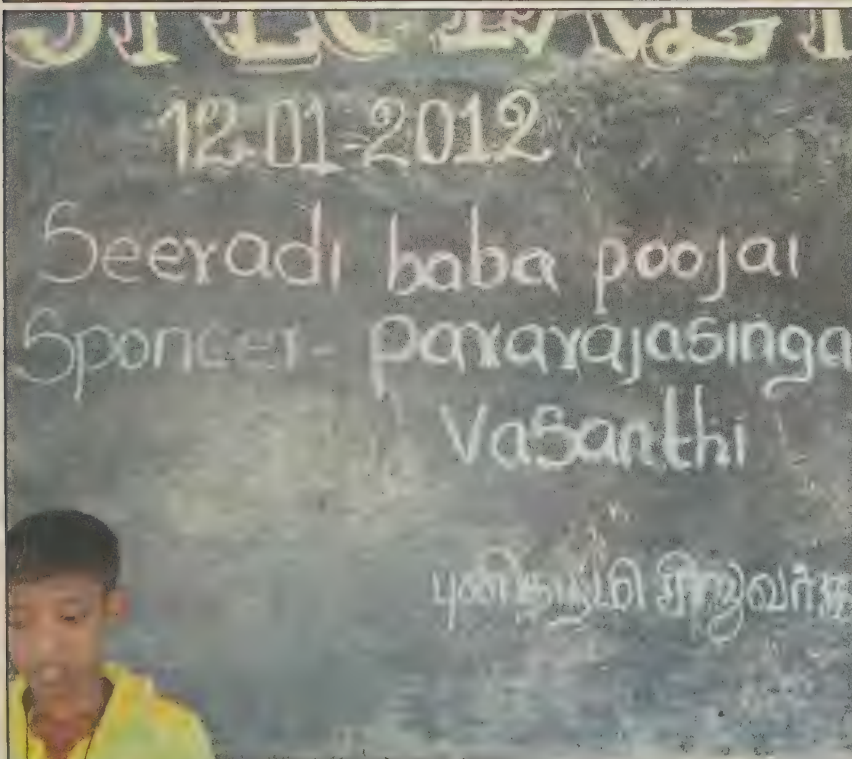 12-01-2012
Seeradi baba poojai
Sponcer- pararajasinga
Vasanthi
புனிதபூமி சிறுவர்